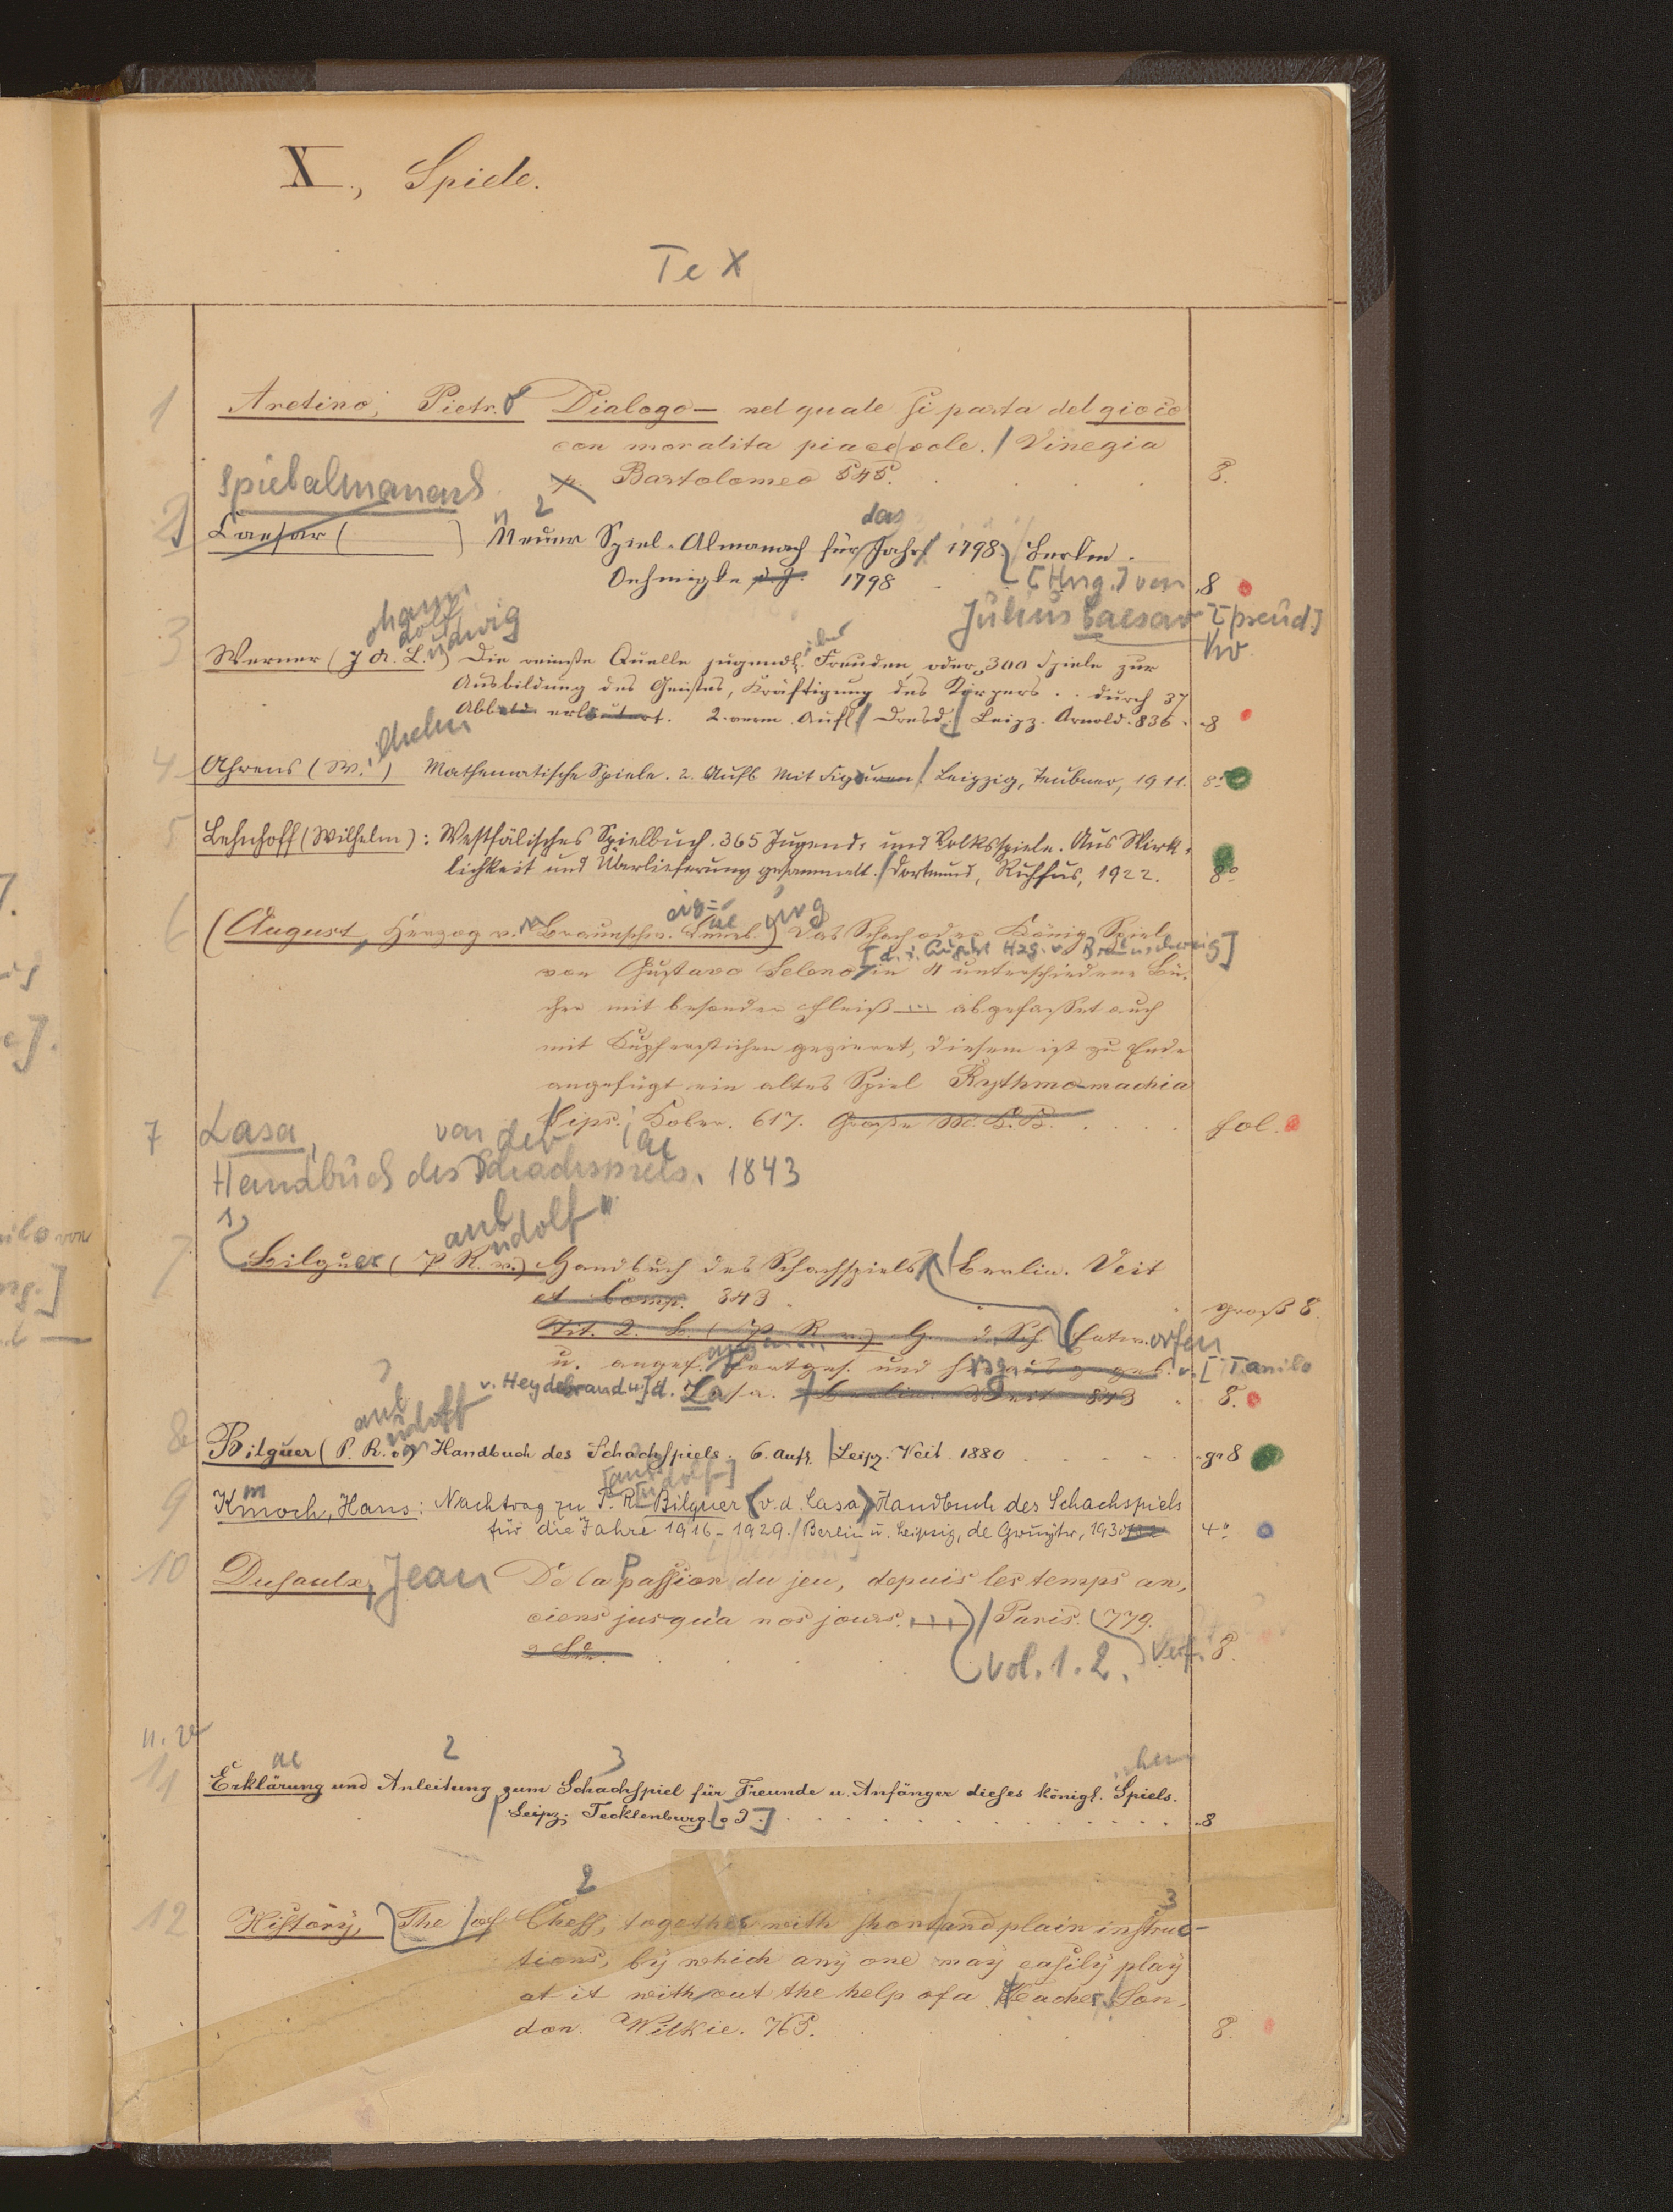 X., Spiele.
Te X
1 Aretino, Pietro Dialogo — nel quale si parla del gioco
con moralita piacevole. / Vinegia
p. Bartolomeo 545. 8.
Spielalmanach
2 Caesar ( ) Neuer Spiel-Almanach für das Jahr 1798. / Berlin.
Oehmigke d. J. 1798 [Hrsg.] von 8
Julius Caesar [pseud.]
3 ohann dolf udwig
Werner (J. A. L.) Die reinste Quelle jugendl. Freuden oder 300 Spiele zur
Ausbildung des Geistes, Kräftigung des Körpers . . durch 37
Abb erläutert. 2. verm. Aufl. / Dresd. / Leipz. Arnold. 836. 8
ilhelm
4 Ahrens (W.) Mathematische Spiele. 2. Aufl. Mit Figuren / Leipzig, Teubner, 1911. 8°
5 Lehnhoff (Wilhelm): Westfälisches Spielbuch. 365 Jugend- und Volksspiele. Aus Wirk-
lichkeit und Überlieferung gesammelt. / Dortmund, Ruhfus, 1922. 8°
6 (August, Herzog v. Braunschw. Lüneb.) Das Schach oder König Spiel
[d. i. August Hzg. v. Braunschweig]
von Gustavo Seleno / in 4 unterschiedene Bü-
cher mit besonder Fleiß ... abgefasset auch
mit Kupferstichen gezieret, diesem ist zu Ende
angefügt ein altes Spiel Rythmo-machia
Lips. Kober. 617. fol.
7 Lasa, von der
Handbuch des Schachspiels. 1843
aul udolf
7 Bilguer (P. R. v.) Handbuch des Schachspiels / Berlin. Veit
et Comp. 343. groß 8.
Entworfen
u. angef. fortges. und v. [Tamilo
v. Heydebrand u.] d. Lasa. Berlin Veit 843 8.
aul udolf
8 Bilguer (P. R. v.) Handbuch des Schachspiels. 6. Aufl. / Leipz. Veit 1880 gr 8
[aul udolf]
9 Kmoch, Hans: Nachtrag zu P. R. Bilguer (v. d. Lasa) Handbuch des Schachspiels
für die Jahre 1916–1929. / Berlin u. Leipzig, de Gruyter, 1930 4°
10 Dusaulx, Jean De la passion du jeu, depuis les temps an-
ciens jusqu'a nos jours. ... / Paris. 779.
2 Bde. Vol. 1. 2. Verf. 8.
11. 2
11 Erklärung und Anleitung zum Schachspiel für Freunde u. Anfänger dieses königl. Spiels.
/ Leipz. Tecklenburg. [o J.] 8
12 History, (The) of Chess, together with short and plain instruc-
tions, by which any one may easily play
at it without the help of a Teacher. / Lon-
don. Wilkie. 765. 8.